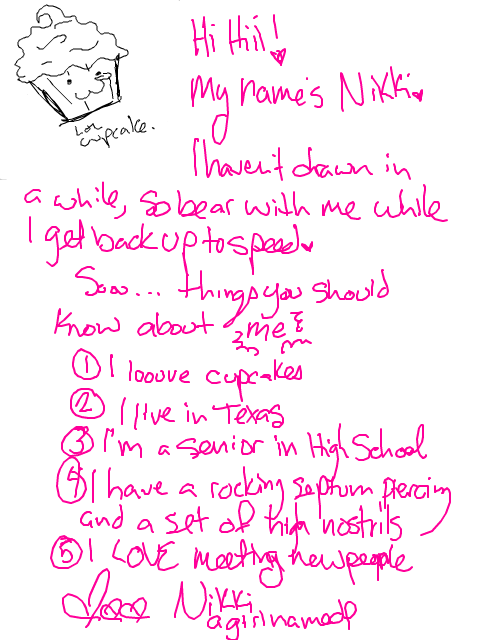 Hi Hiii!
My name's Nikki
Lol
cupcake.
I haven't drawn in
a while, so bear with me while
I get back up to speed
Sooo... things you should
know about me
① I looove cupcakes
② I live in Texas
③ I'm a senior in High School
④ I have a rocking septum piercing
and a set of high nostrils
⑤ I LOVE meeting new people
Nikki